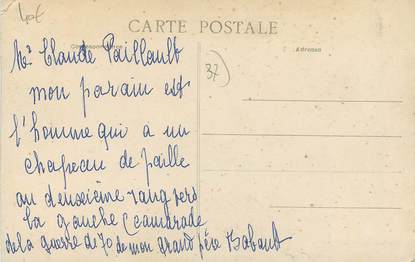 40€
CARTE POSTALE
Correspondance
Adresse
37
Mr Claude Paillault
mon parain est
l'homme qui a un
chapeau de paille
au denseicème rang vers
la gauche (camarade
de la guerre de 70 de mon grand père Babault